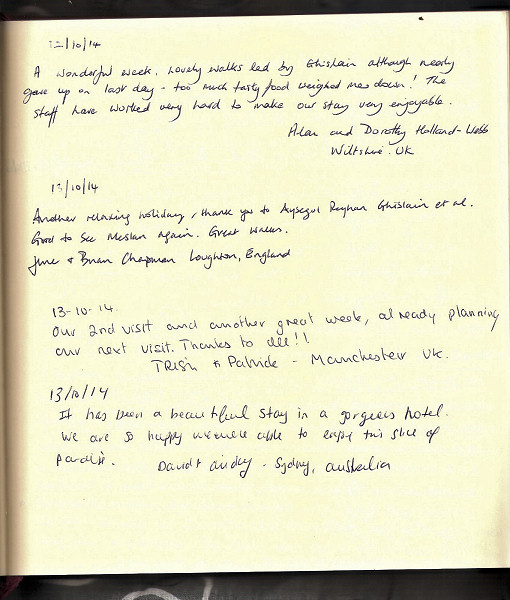 12/10/14
A wonderful week. Lovely walks led by Ghislain although nearly
gave up on last day - too much tasty food weighed me down! The
staff have worked very hard to make our stay very enjoyable.
Alan and Dorothy Holland-Webb
Wiltshire. UK
13/10/14
Another relaxing holiday, thank you to Aysegul Reyhan Ghislain et al.
Good to see Meslan again. Great walks.
June & Brian Chapman Loughton, England
13-10-14.
Our 2nd visit and another great week, already planning
our next visit. Thanks to all!!
TRISH & Patrick - Manchester UK.
13/10/14
It has been a beautiful stay in a gorgeous hotel.
We are so happy we were able to enjoy this slice of
paradise. David + - Sydney, australia